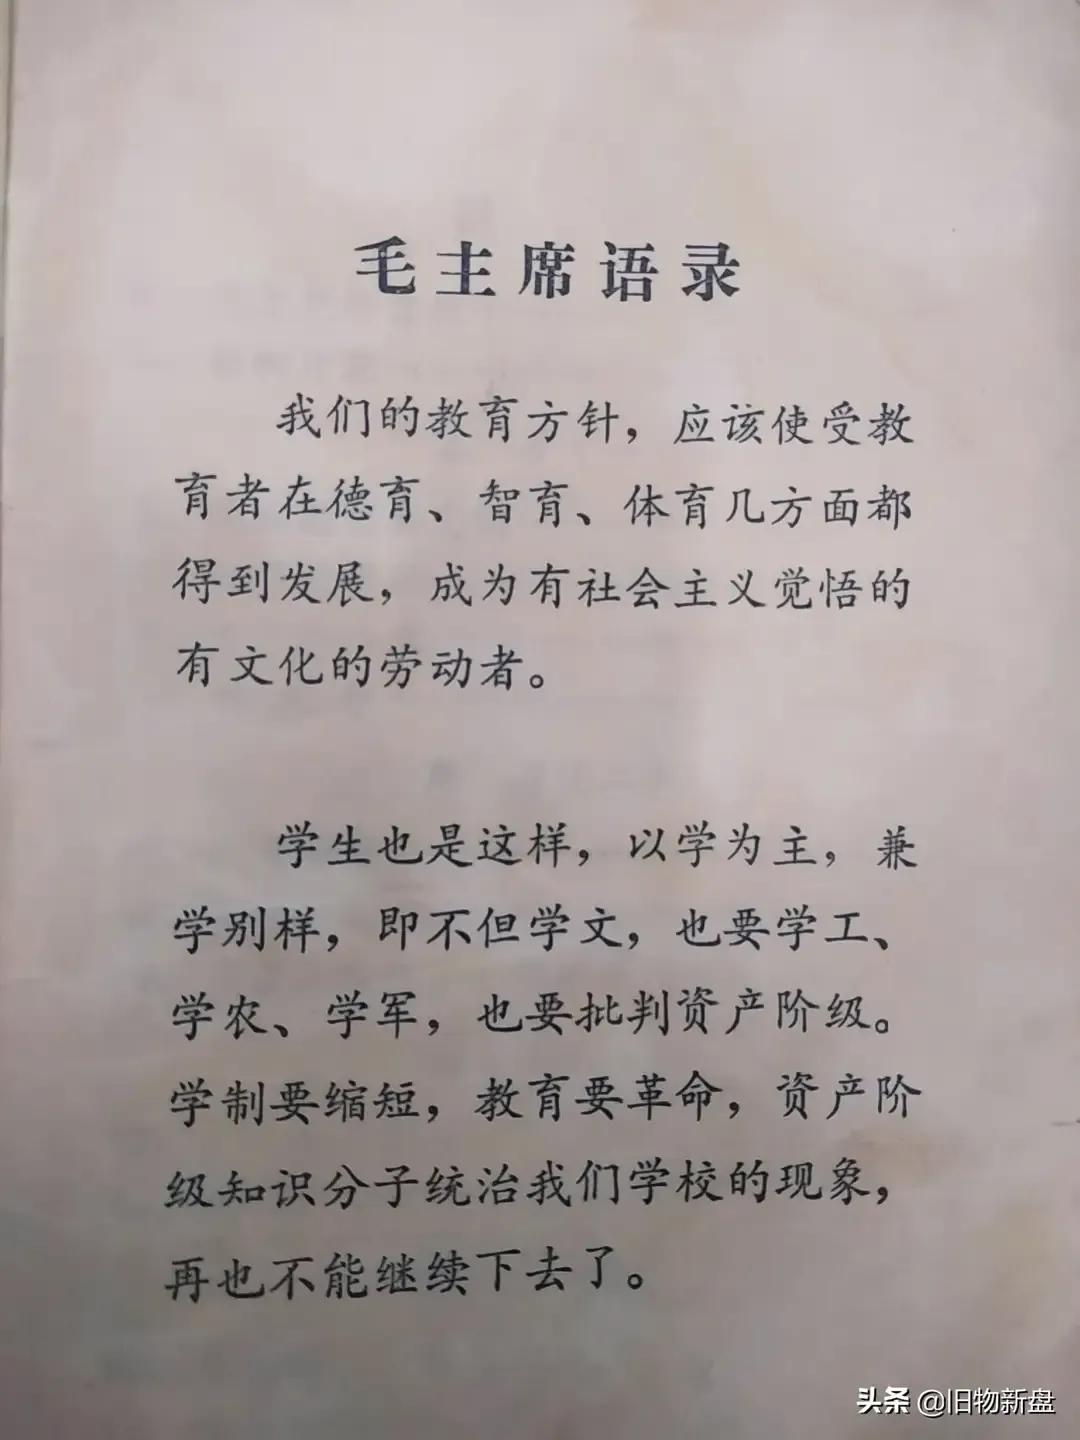 毛主席语录
我们的教育方针，应该使受教
育者在德育、智育、体育几方面都
得到发展，成为有社会主义觉悟的
有文化的劳动者。
学生也是这样，以学为主，兼
学别样，即不但学文，也要学工、
学农、学军，也要批判资产阶级。
学制要缩短，教育要革命，资产阶
级知识分子统治我们学校的现象，
再也不能继续下去了。
头条 @旧物新盘